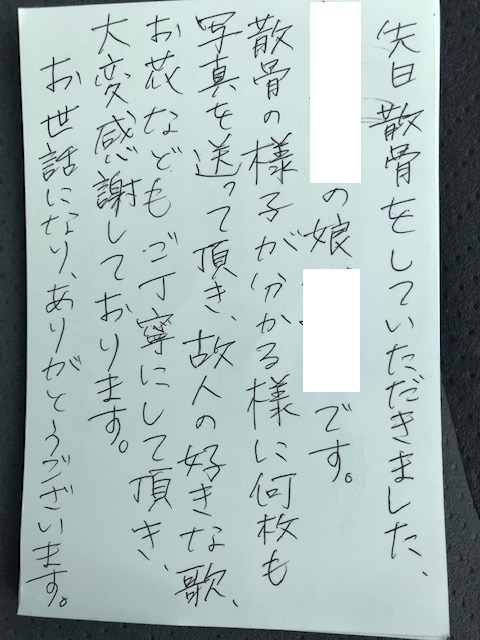 先日散骨をしていただきました、
の娘、です。
散骨の様子が分かる様に何枚も
写真を送って頂き、故人の好きな歌、
お花などもご丁寧にして頂き、
大変感謝しております。
お世話になり、ありがとうございます。